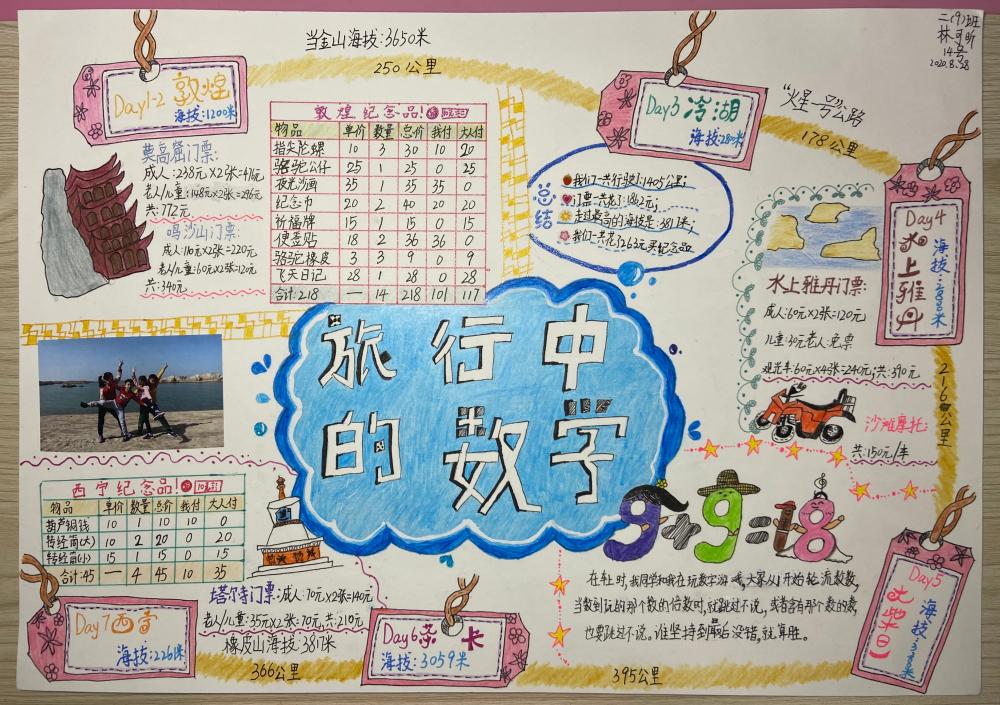 二(9)班
林可昕
14号
2020.8.28
当金山海拔:3650米
250公里
Day1-2 敦煌
海拔:1200米
莫高窟门票:
成人:238元×2张=476元
老人/儿童:148元×2张=296元
共:772元
鸣沙山门票:
成人:110元×2张=220元
老人/儿童:60元×2张=120元
共:340元
敦煌纪念品!
物品 单价 数量 总价 我付 大人付
指尖陀螺 10 3 30 10 20
骆驼公仔 25 1 25 0 25
夜光沙画 35 1 35 35 0
纪念巾 20 2 40 20 20
祈福牌 15 1 15 0 15
便签贴 18 2 36 36 0
骆驼橡皮 3 3 9 0 9
飞天日记 28 1 28 0 28
合计:218 — 14 218 101 117
Day3 冷湖
海拔:280米
"火星一号"公路
178公里
总结
我们一共行驶了:1405公里;
门票一共花了:1862元;
走过最高的海拔是:3817米;
我们一共花了263元买纪念品。
Day4
水上雅丹
海拔:2800米
水上雅丹门票:
成人:60元×2张=120元;
儿童:30元老人:免票
观光车:60元×4张=240元;共:390元
沙滩摩托:
共:150元/车
216公里
旅行中
的数学
9+9=18
在车上时,我同学和我在玩数字游戏,大家从1开始轮流数数,
当数到玩的那个数的倍数时,就跳过不说,或者含有那个数的数,
也要跳过不说。谁坚持到最后没错,就算胜。
Day5
大柴旦
395公里
Day6 茶卡
海拔:3059米
西宁纪念品!
物品 单价 数量 总价 我付 大人付
葫芦铜钱 10 1 10 10 0
转经筒(大) 10 2 20 0 20
转经筒(小) 15 1 15 0 15
合计:45 — 4 45 10 35
塔尔寺门票:成人:70元×2张=140元
老人/儿童:35元×2张=70元,共:210元
橡皮山海拔:3817米
366公里
Day7 西宁
海拔:2261米